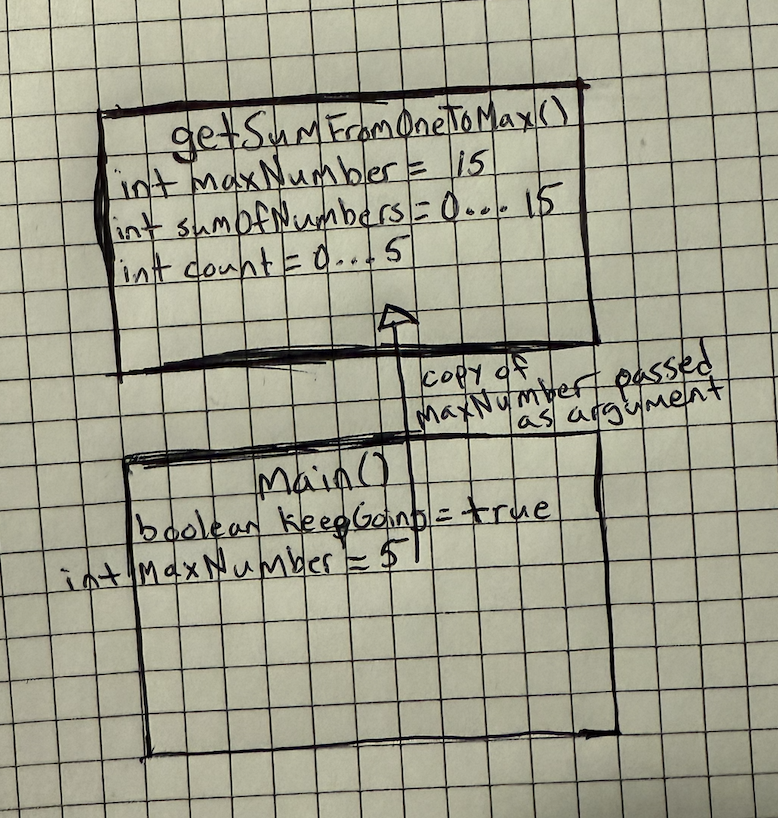 getSumFromOneToMax()
int maxNumber = 15
int sumOfNumbers = 0... 15
int count = 0... 5
copy of
maxNumber passed
as argument
Main()
boolean keepGoing = true
int MaxNumber = 5